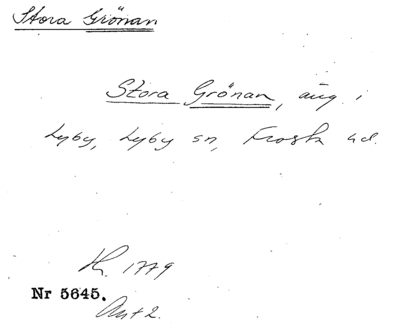 Stora Grönan
Stora Grönan, äng i
Lyby, Lyby sn, Frosta hd.
Kr. 1779
Nr 5645.
Akt 2.